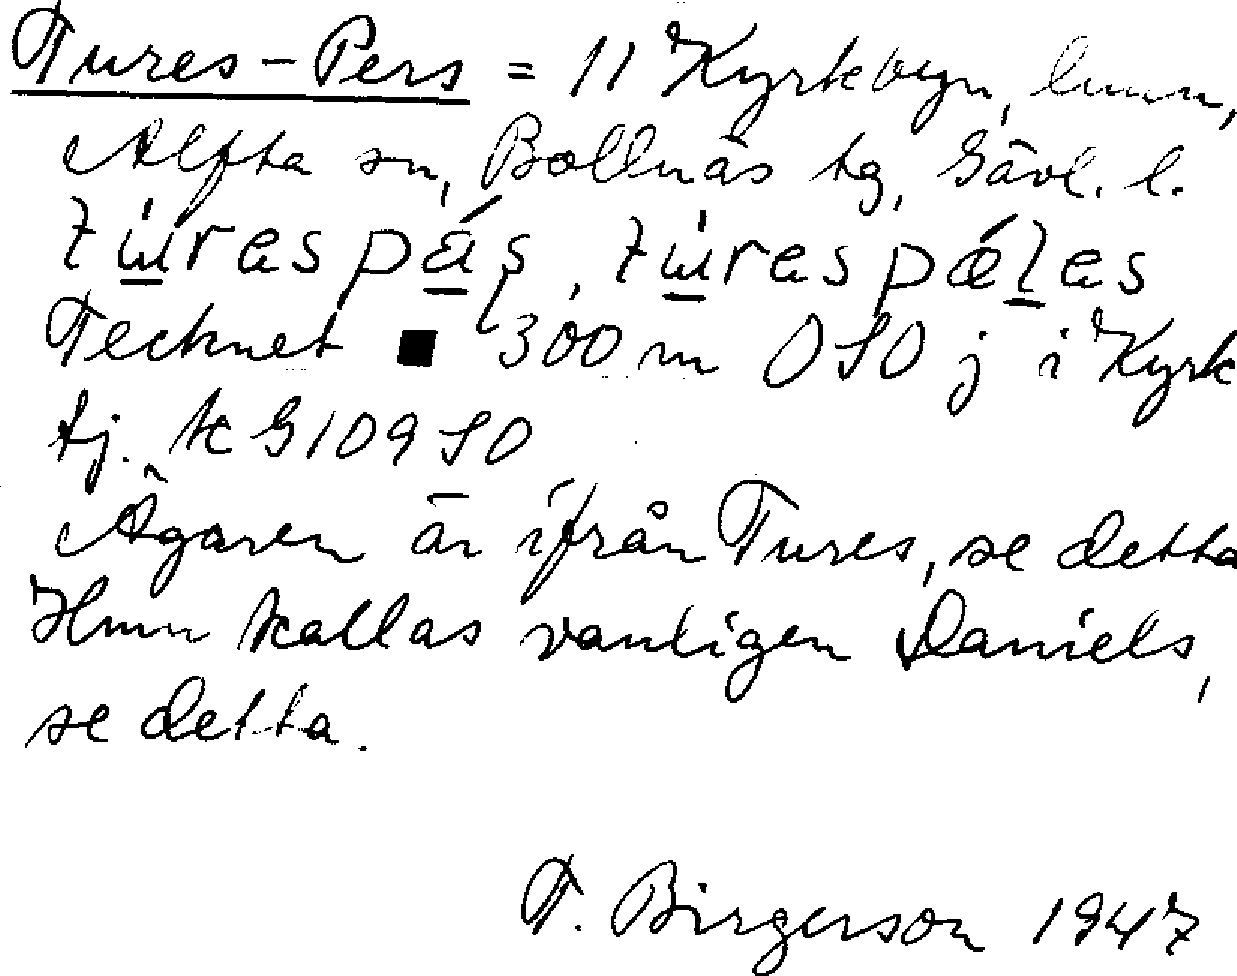 Tures-Pers = 11 Kyrkbyn, hmn,
Alfta sn, Bollnäs tg, Gävl. l.
Tecknet ■ 300 m OSO j i Kyrk
tj. k G109SO
Ägaren är ifrån Tures, se detta
Hmn kallas vanligen Daniels,
se detta.
T. Birgerson 1947